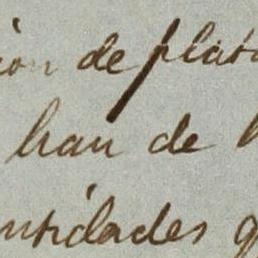 ion de plata
han de l
ntidades q